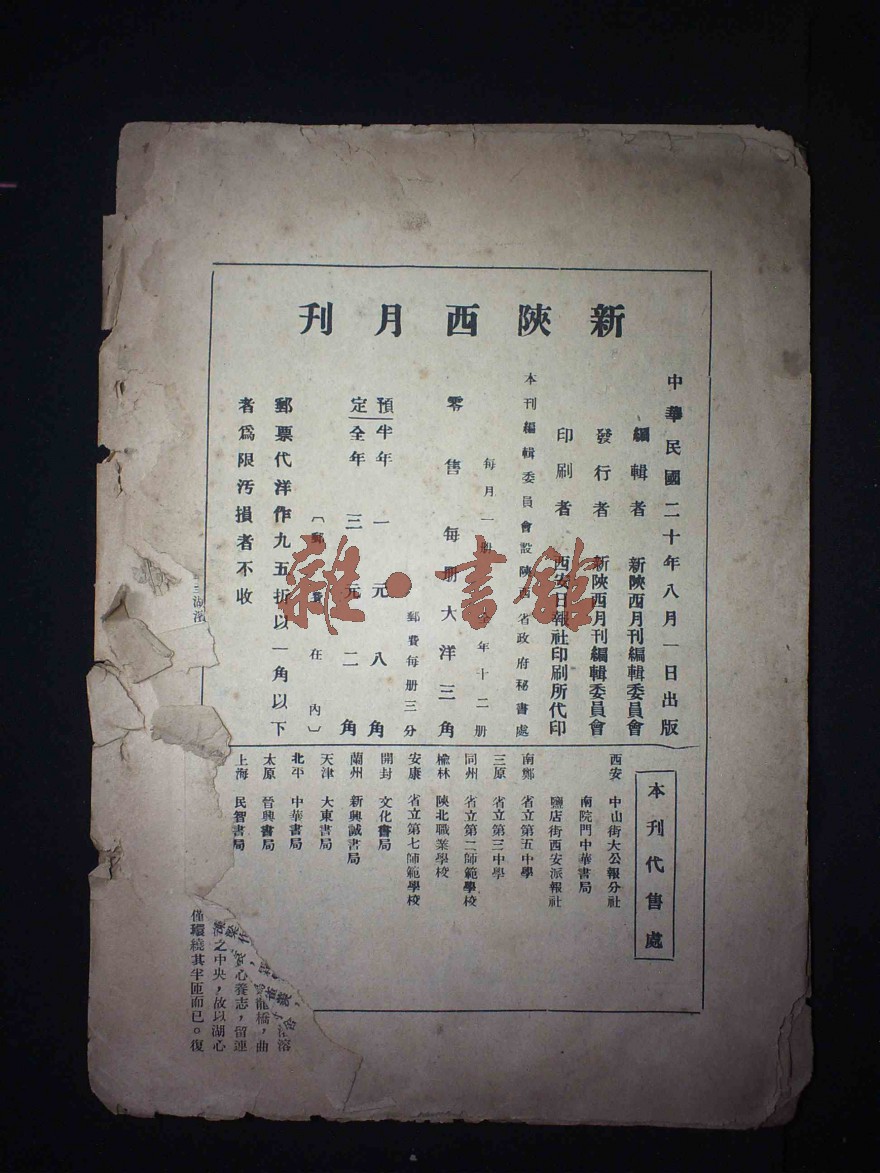 新陝西月刊
中華民國二十年八月一日出版
編輯者 新陝西月刊編輯委員會
發行者 新陝西月刊編輯委員會
印刷者 西安日報社印刷所代印
本刊編輯委員會設陝西省政府秘書處
每月一册 全年十二册
零售每册大洋三角
郵費每册三分
預定
半年 一元八角
全年 三元二角
〔郵費在內〕
郵票代洋作九五折以一角以下
者爲限汚損者不收
本刊代售處
西安 中山街大公報分社
南院門中華書局
鹽店街西安派報社
南鄭 省立第五中學
三原 省立第三中學
同州 省立第二師範學校
楡林 陝北職業學校
安康 省立第七師範學校
開封 文化書局
蘭州 新興誠書局
天津 大東書局
北平 中華書局
太原 晉興書局
上海 民智書局
溶
龍橋，曲
心養志，留連
之中央，故以湖心
僅環繞其半匝而已。復
雜·書館